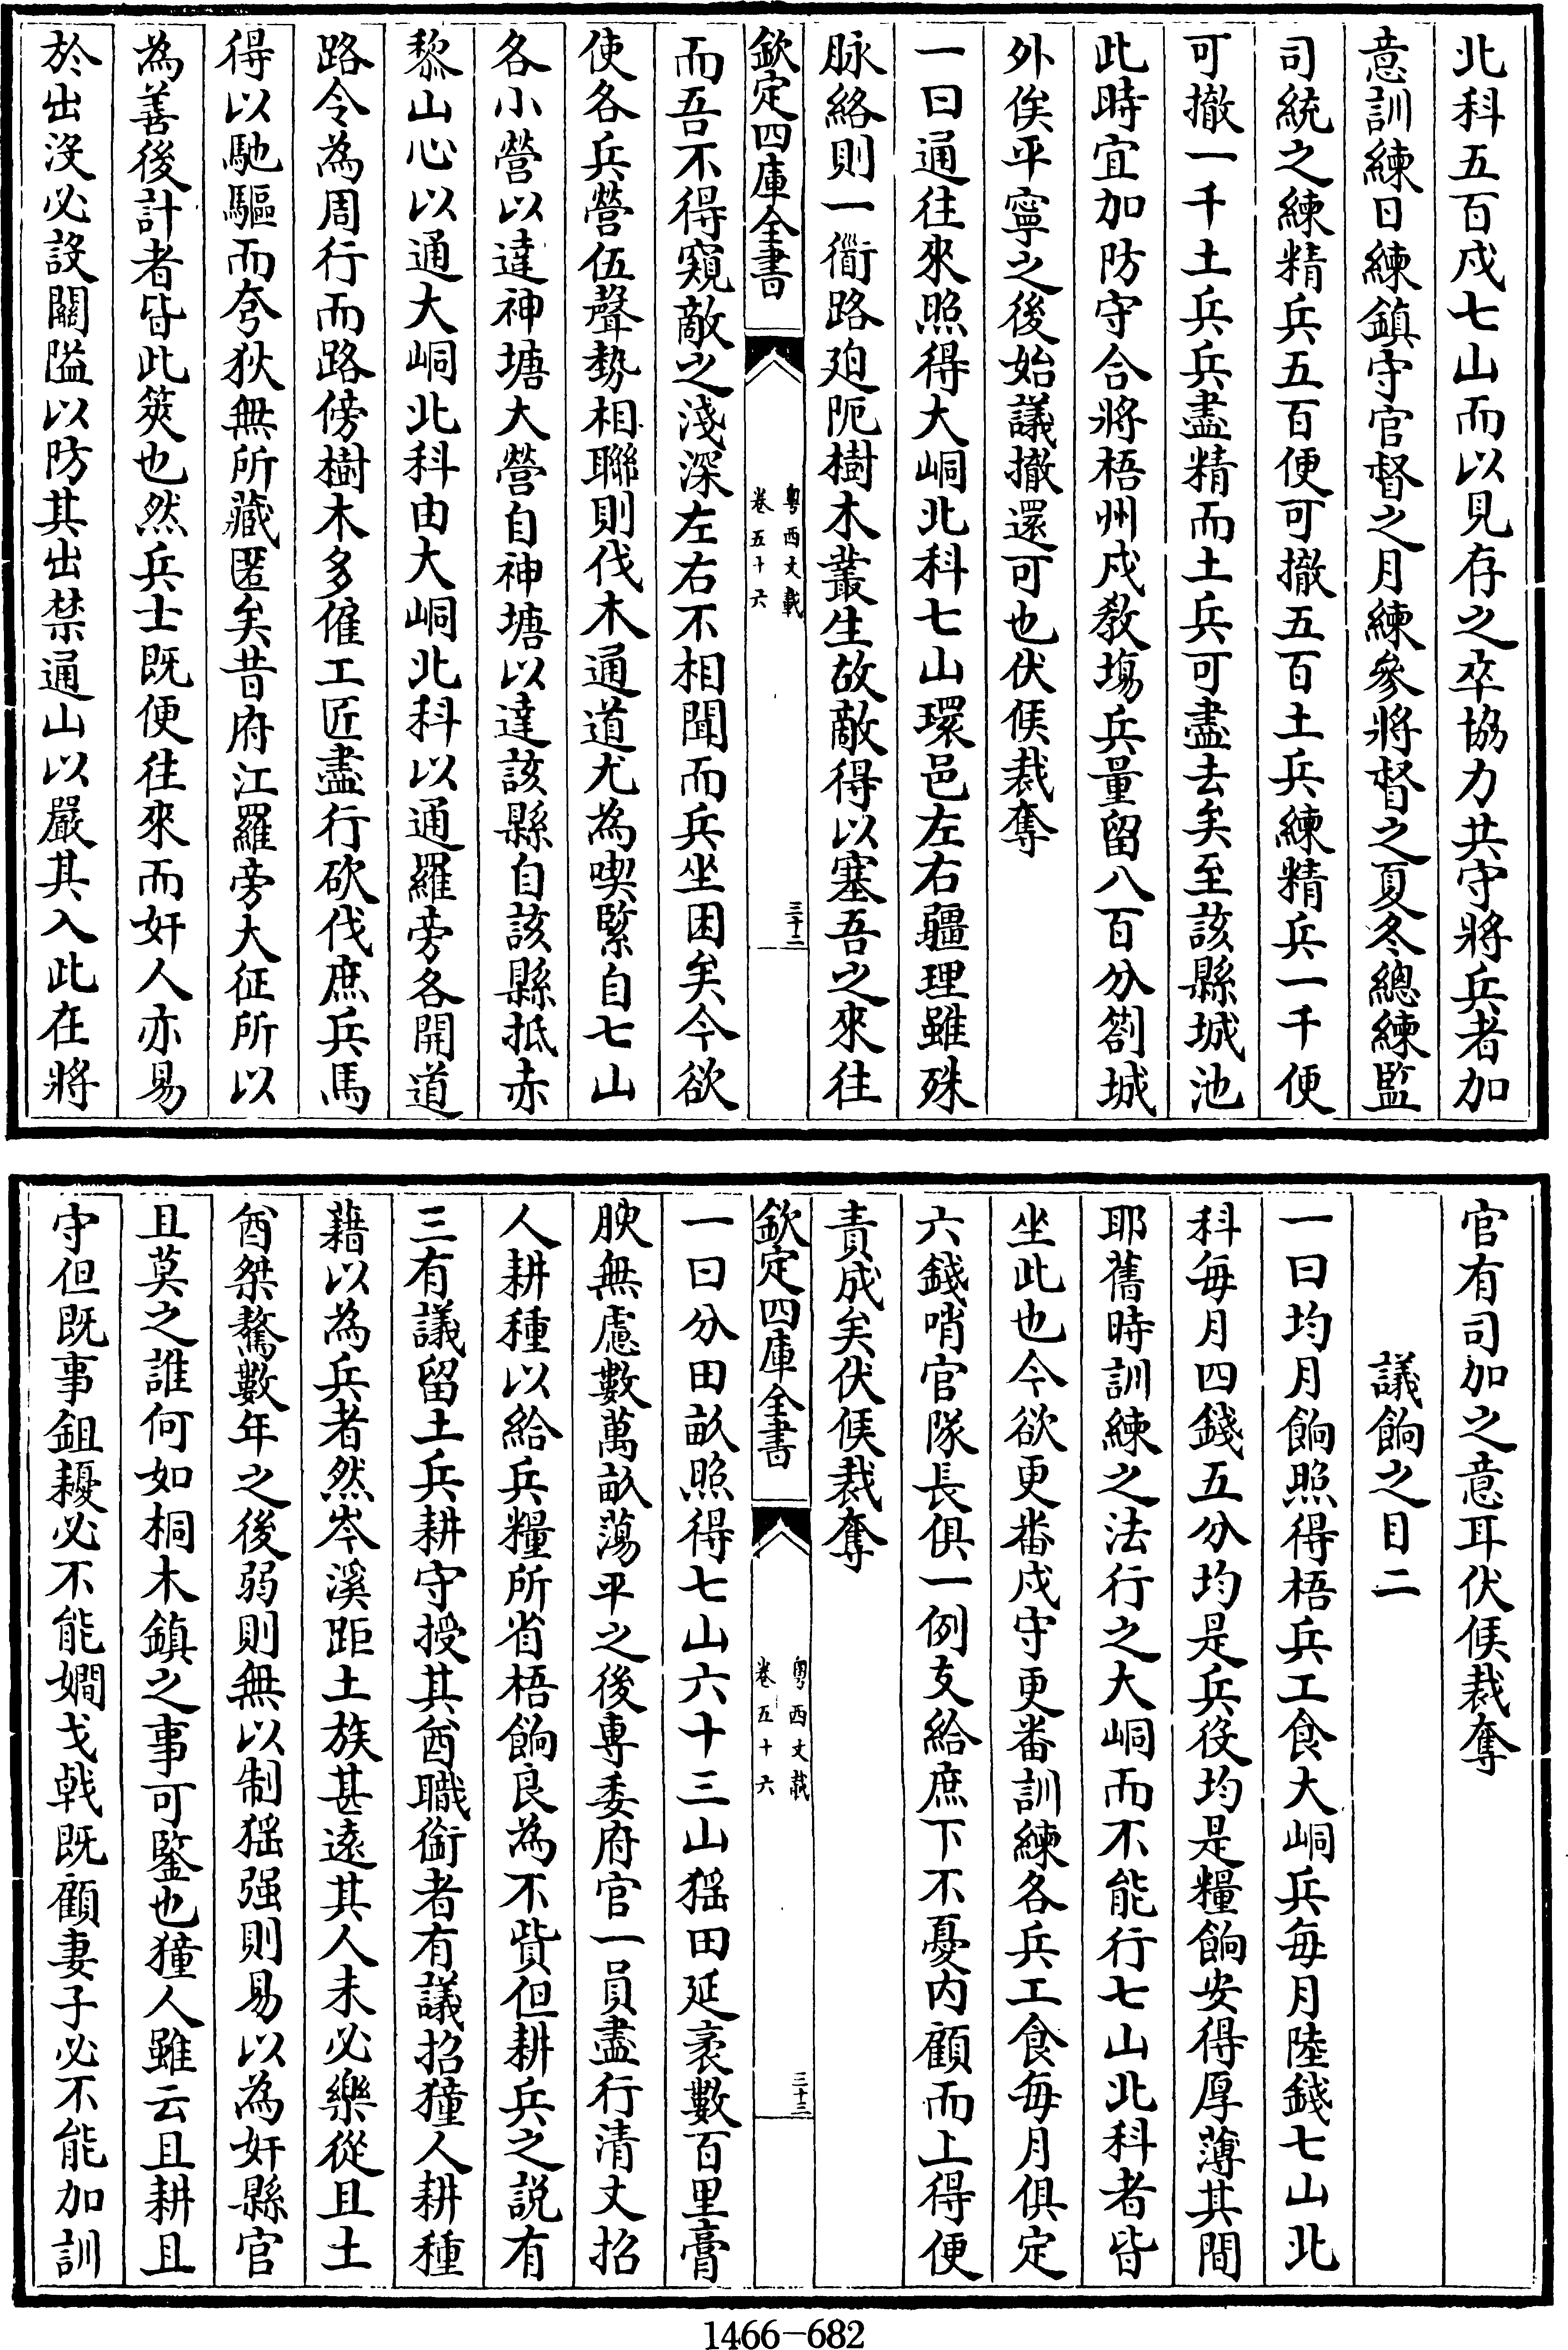 北科五百戍七山而以見存之卒協力共守將兵者加
意訓練日練鎮守官督之月練參將督之夏冬總練監
司統之練精兵五百便可撤五百土兵練精兵一千便
可撤一千土兵兵盡精而土兵可盡去矣至該縣城池
此時宜加防守合將梧州戍教塲兵量留八百分劄城
外俟平寧之後始議撤還可也伏候裁奪
一曰通往來照得大峒北科七山環邑左右疆理雖殊
脉絡則一衢路廹阨樹木叢生故敵得以塞吾之來往
欽定四庫全書
粤西文載
卷五十六
三十二
而吾不得窺敵之淺深左右不相聞而兵坐困矣今欲
使各兵營伍聲勢相聯則伐木通道尤為喫緊自七山
各小營以達神塘大營自神塘以達該縣自該縣抵赤
黎山心以通大峒北科由大峒北科以通羅旁各開道
路令為周行而路傍樹木多僱工匠盡行砍伐庶兵馬
得以馳驅而夸狄無所藏匿矣昔府江羅旁大征所以
為善後計者皆此筴也然兵士既便往來而奸人亦易
於出没必設關隘以防其出禁通山以嚴其入此在將
官有司加之意耳伏候裁奪
議餉之目二
一曰均月餉照得梧兵工食大峒兵每月陸錢七山北
科每月四錢五分均是兵役均是糧餉安得厚薄其間
耶舊時訓練之法行之大峒而不能行七山北科者皆
坐此也今欲更番戍守更番訓練各兵工食每月俱定
六錢哨官隊長俱一例支給庶下不憂内顧而上得便
責成矣伏候裁奪
欽定四庫全書
粤西文載
卷五十六
三十三
一曰分田畝照得七山六十三山猺田延袤數百里膏
腴無慮數萬畝蕩平之後專委府官一員盡行清丈招
人耕種以給兵糧所省梧餉良為不貲但耕兵之説有
三有議留土兵耕守授其酋職銜者有議招獞人耕種
藉以為兵者然岑溪距土族甚遠其人未必樂從且土
酋桀驁數年之後弱則無以制猺强則易以為奸縣官
且莫之誰何如桐木鎮之事可鑒也獞人雖云且耕且
守但既事鉏耰必不能嫺戈㦸既顧妻子必不能加訓
1466-682